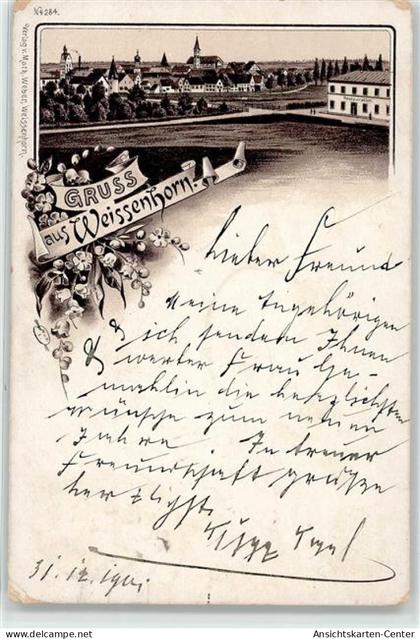 No 284.
Verlag v. Mart. Weber, Weissenhorn.
GRUSS
aus Weissenhorn.
Lieber Freund
Meine Angehörigen
& ich senden Ihnen
& werter Frau Ge-
mahlin die herzlichsten
Wünsche zum neuen
Jahre. In treuer
Freundschaft grüssen
herzlichst
31.12.1901
Ansichtskarten-Center.